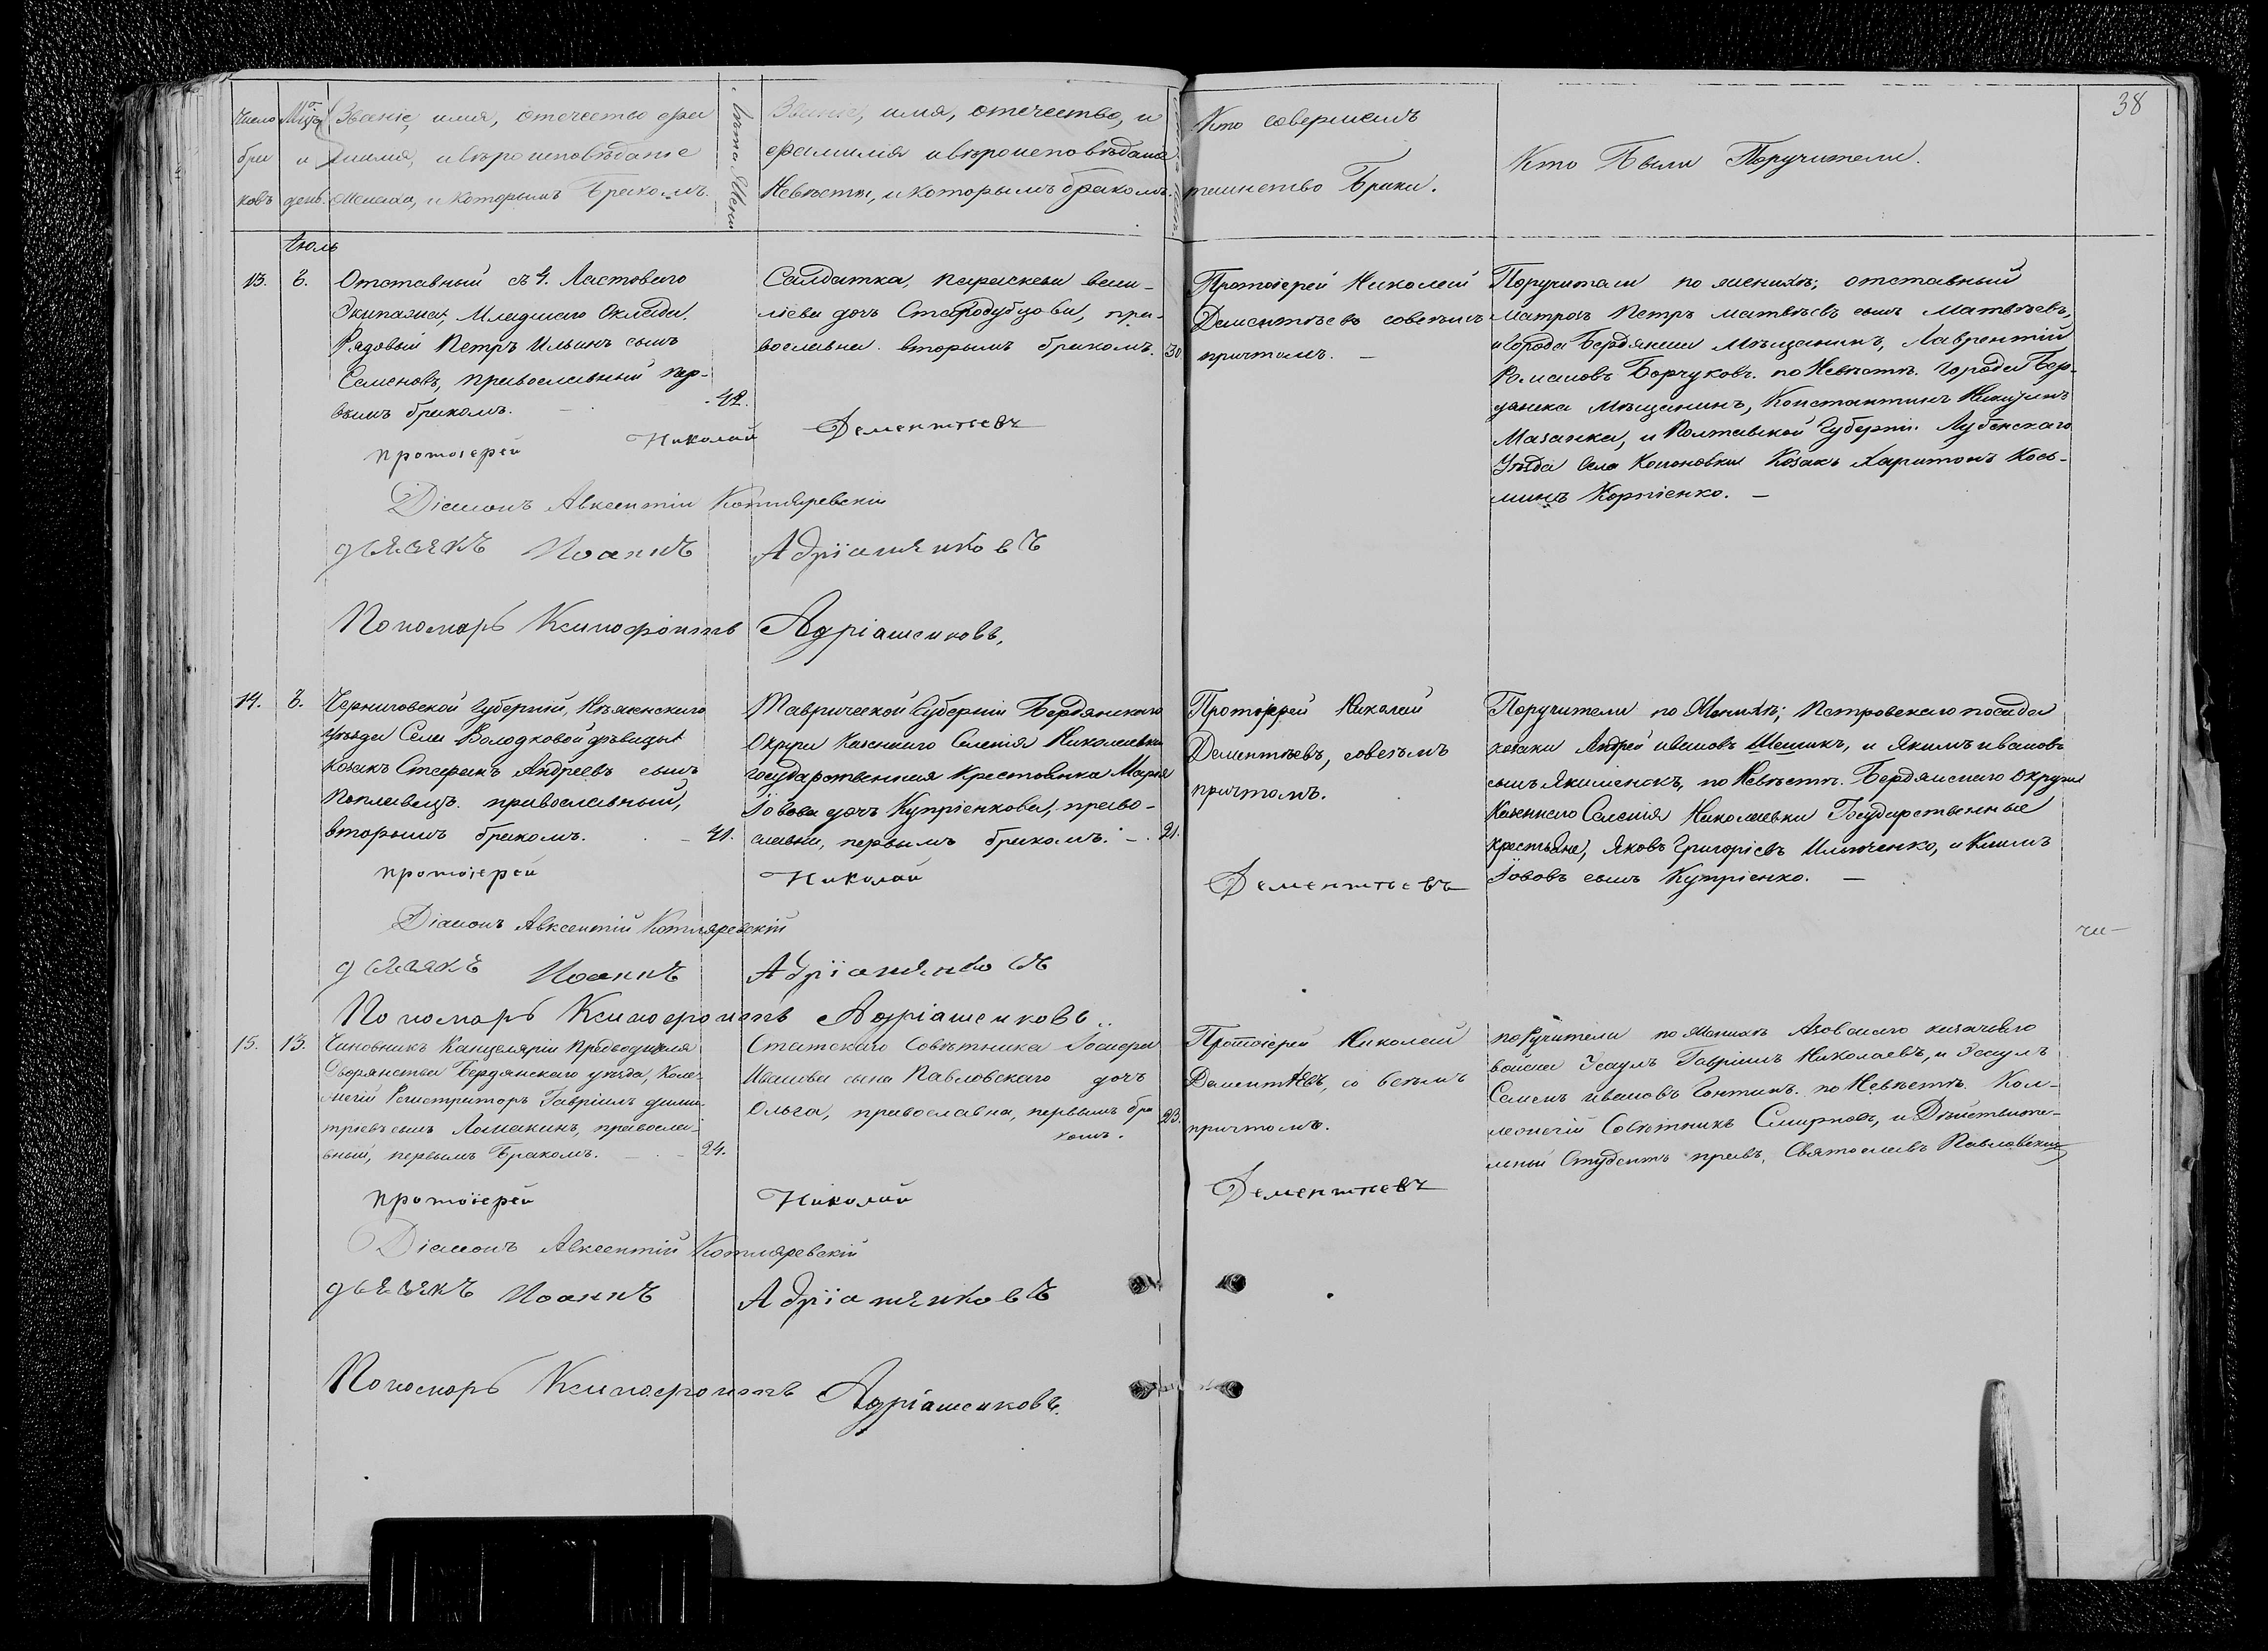 38
Число Мѣся Званіе, имя, отечество фа
бра и милія, и вѣроисповѣданіе
ковъ день. Жениха, и которымъ бракомъ.
Лѣта Жених
Званіе, имя, отечество, и
фамилія и вѣроисповѣдані
Невѣсты, и которымъ бракомъ.
Кто совершилъ
таинство Брака.
Кто Были Поручители.
Іюль
13. 6. Отставный съ 4. Ластоваго
Экипажа, Младшаго Оклада.
Рядовый Петръ Ильинъ сынъ
Семеновъ, православный пер-
вымъ бракомъ. — 42.
Салдатка, Параскева васи-
ліева дочь Стародубцова, пра-
вославна. вторымъ бракомъ. 30
Протоіерей Николай
Дементьевъ совсѣмъ
причтомъ. —
Поручители по женихѣ; отставный
матросъ Петръ матвѣевъ сынъ Матвѣевъ,
и города Бердянска Мѣщанинъ, Лаврентій
Романовъ Борчуковъ. по Невѣстѣ. города Бер-
дянска Мѣщанинъ, Константинъ Никитинъ
Мазанка, и Полтавской Губерніи. Лубенскаго
Уѣзда Села Козак Харитонъ Кось-
минъ Корніенко. —
протоіерей Николай Дементьевъ
Діаконъ Авксентій Котляревскій
дьячекъ Иоаннъ Адріашенковъ
Пономарь Ксинофонтъ Адріашенковъ,
14. 6. Черниговской Губерніи, Нѣжинскаго
уѣзда Села Володковой дѣвицы
козакъ Стефанъ Андреевъ сынъ
Поплавецъ. православный,
вторымъ бракомъ. — 41.
Таврической Губерніи Бердянскаго
Округа Казеннаго Селенія Николаевки
государственная крестьянка Марія
Іовова дочь Купріенкова, право-
славна, первымъ бракомъ. — 21.
Протоіерей Николай
Дементьевъ, совсѣмъ
причтомъ.
Поручители по Женихѣ; Петровскаго посада
козаки Андрей ивановъ Шешикъ, и Якимъ ивановъ
сынъ Якименокъ, по Невѣстѣ. Бердянскаго Округа
Казеннаго Селенія Николаевки Государственные
крестьяне, Яковъ Григоріевъ Ильченко, и Климъ
Іововъ сынъ Купріенко. —
протоіерей Николай Дементьевъ
Діаконъ Авксентій Котляревскій
дьячекъ Иоаннъ Адріашенковъ
Пономарь Ксинофонтъ Адріашенковъ..
15. 13. Чиновникъ Канцеляріи Предводителя
Дворянства Бердянскаго уѣзда, Коле-
жскій Регистраторъ Гавріилъ дими-
тріевъ сынъ Ломакинъ, правосла-
вный, первымъ Бракомъ. — 24.
Статскаго Совѣтника Іосифа
Иванова сына Павловскаго дочь
Ольга, православна, первымъ бра 23.
комъ.
Протоіерей Николай
Дементьевъ, со всѣмъ
причтомъ.
поручители по Женихѣ Азовскаго казачьяго
войска Эсаулъ Гавріилъ Николаевъ, и Эсаулъ
Семенъ ивановъ Гонтинъ. по Невѣстѣ. Кол-
лежскій Совѣтникъ Смирновъ, и Дѣйствите-
льный Студентъ правъ, Святославъ Павловскій
протоіерей Николай Дементьевъ
Діаконъ Авксентій Котляревскій
дьячекъ Иоаннъ Адріашенковъ
Пономарь Ксинофонтъ Адріашенковъ.